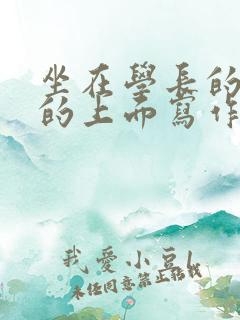 坐在學長的
的上面寫作
我愛小豆
未任同意禁止轉載